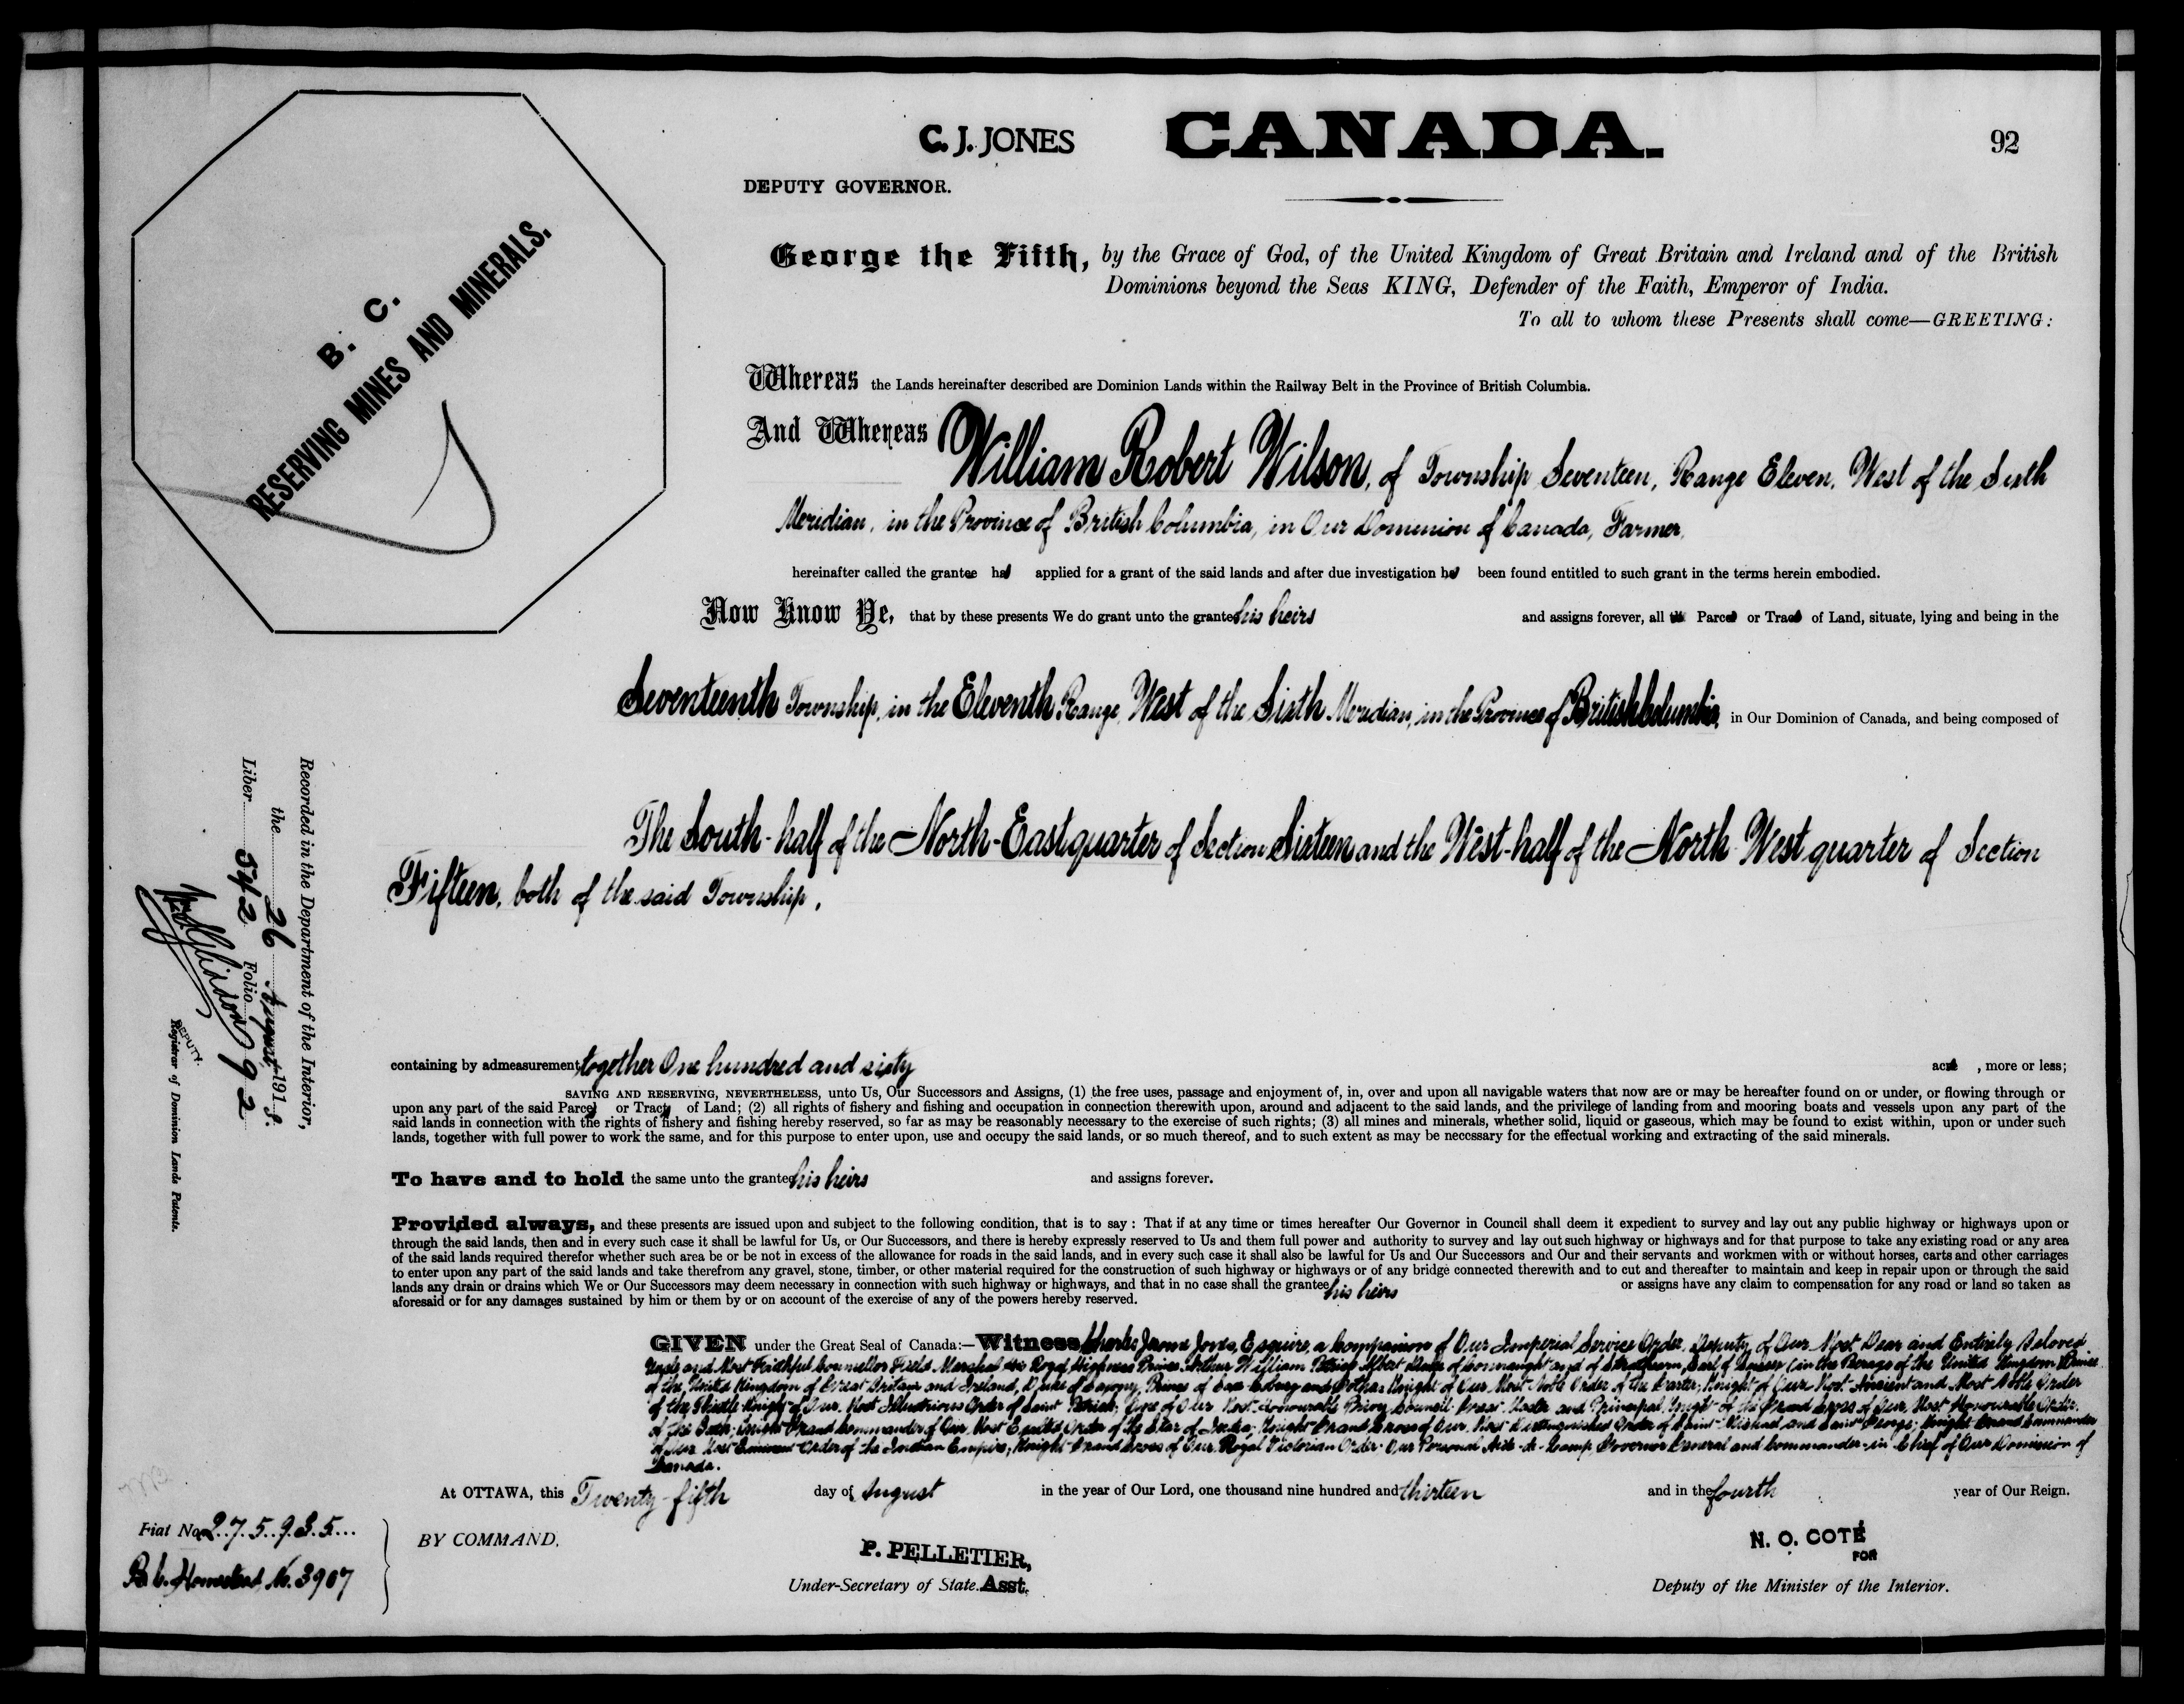 C. J. JONES
CANADA.
92
DEPUTY GOVERNOR.
B. C.
RESERVING MINES AND MINERALS.
George the Fifth, by the Grace of God, of the United Kingdom of Great Britain and Ireland and of the British
Dominions beyond the Seas KING, Defender of the Faith, Emperor of India.
To all to whom these Presents shall come—GREETING:
Whereas the Lands hereinafter described are Dominion Lands within the Railway Belt in the Province of British Columbia.
And Whereas William Robert Wilson, of Township Seventeen, Range Eleven, West of the Sixth
Meridian, in the Province of British Columbia, in Our Dominion of Canada, Farmer,
hereinafter called the grantee has applied for a grant of the said lands and after due investigation has been found entitled to such grant in the terms herein embodied.
Now Know Ye, that by these presents We do grant unto the grantee his heirs and assigns forever, all the Parcel or Tract of Land, situate, lying and being in the
Seventeenth Township, in the Eleventh Range, West of the Sixth Meridian, in the Province of British Columbia, in Our Dominion of Canada, and being composed of
The South-half of the North-East quarter of Section Sixteen and the West-half of the North West quarter of Section
Fifteen, both of the said Township,
containing by admeasurement together One hundred and sixty acres, more or less;
SAVING AND RESERVING, NEVERTHELESS, unto Us, Our Successors and Assigns, (1) the free uses, passage and enjoyment of, in, over and upon all navigable waters that now are or may be hereafter found on or under, or flowing through or
upon any part of the said Parcel or Tract of Land; (2) all rights of fishery and fishing and occupation in connection therewith upon, around and adjacent to the said lands, and the privilege of landing from and mooring boats and vessels upon any part of the
said lands in connection with the rights of fishery and fishing hereby reserved, so far as may be reasonably necessary to the exercise of such rights; (3) all mines and minerals, whether solid, liquid or gaseous, which may be found to exist within, upon or under such
lands, together with full power to work the same, and for this purpose to enter upon, use and occupy the said lands, or so much thereof, and to such extent as may be necessary for the effectual working and extracting of the said minerals.
To have and to hold the same unto the grantee his heirs and assigns forever.
Provided always, and these presents are issued upon and subject to the following condition, that is to say: That if at any time or times hereafter Our Governor in Council shall deem it expedient to survey and lay out any public highway or highways upon or
through the said lands, then and in every such case it shall be lawful for Us, or Our Successors, and there is hereby expressly reserved to Us and them full power and authority to survey and lay out such highway or highways and for that purpose to take any existing road or any area
of the said lands required therefor whether such area be or be not in excess of the allowance for roads in the said lands, and in every such case it shall also be lawful for Us and Our Successors and Our and their servants and workmen with or without horses, carts and other carriages
to enter upon any part of the said lands and take therefrom any gravel, stone, timber, or other material required for the construction of such highway or highways or of any bridge connected therewith and to cut and thereafter to maintain and keep in repair upon or through the said
lands any drain or drains which We or Our Successors may deem necessary in connection with such highway or highways, and that in no case shall the grantee his heirs or assigns have any claim to compensation for any road or land so taken as
aforesaid or for any damages sustained by him or them by or on account of the exercise of any of the powers hereby reserved.
GIVEN under the Great Seal of Canada:—Witness Charles Jones, Esquire, a Companion of Our Imperial Service Order, Deputy of Our Most Dear and Entirely Beloved
Uncle and Most Faithful Counsellor Field Marshal His Royal Highness Prince Arthur William Patrick Albert Duke of Connaught and of Strathearn, Earl of Sussex (in the Peerage of the United Kingdom) Prince
of the United Kingdom of Great Britain and Ireland, Duke of Saxony, Prince of Saxe Coburg and Gotha; Knight of Our Most Noble Order of the Garter; Knight of Our Most Ancient and Most Noble Order
of the Thistle Knight of Our Most Illustrious Order of Saint Patrick; One of Our Most Honourable Privy Council Great Master and Principal Knight of the Grand Cross of Our Most Honourable Order
of the Bath; Knight Grand Commander of Our Most Exalted Order of the Star of India; Knight Grand Cross of Our Most Distinguished Order of Saint Michael and Saint George; Knight Grand Commander
of Our Most Eminent Order of the Indian Empire; Knight Grand Cross of Our Royal Victorian Order Our Personal Aide-de-Camp, Governor General and Commander-in-Chief of Our Dominion of
Canada.
At OTTAWA, this Twenty-fifth day of August in the year of Our Lord, one thousand nine hundred and thirteen and in the fourth year of Our Reign.
BY COMMAND,
P. PELLETIER,
Under-Secretary of State. Asst.
N. O. COTÉ
FOR
Deputy of the Minister of the Interior.
Fiat No. 275935
B.C. Homestead No. 3907
Recorded in the Department of the Interior,
the 26 August 1913.
Liber 542 Folio 92
DEPUTY
Registrar of Dominion Lands Patents.